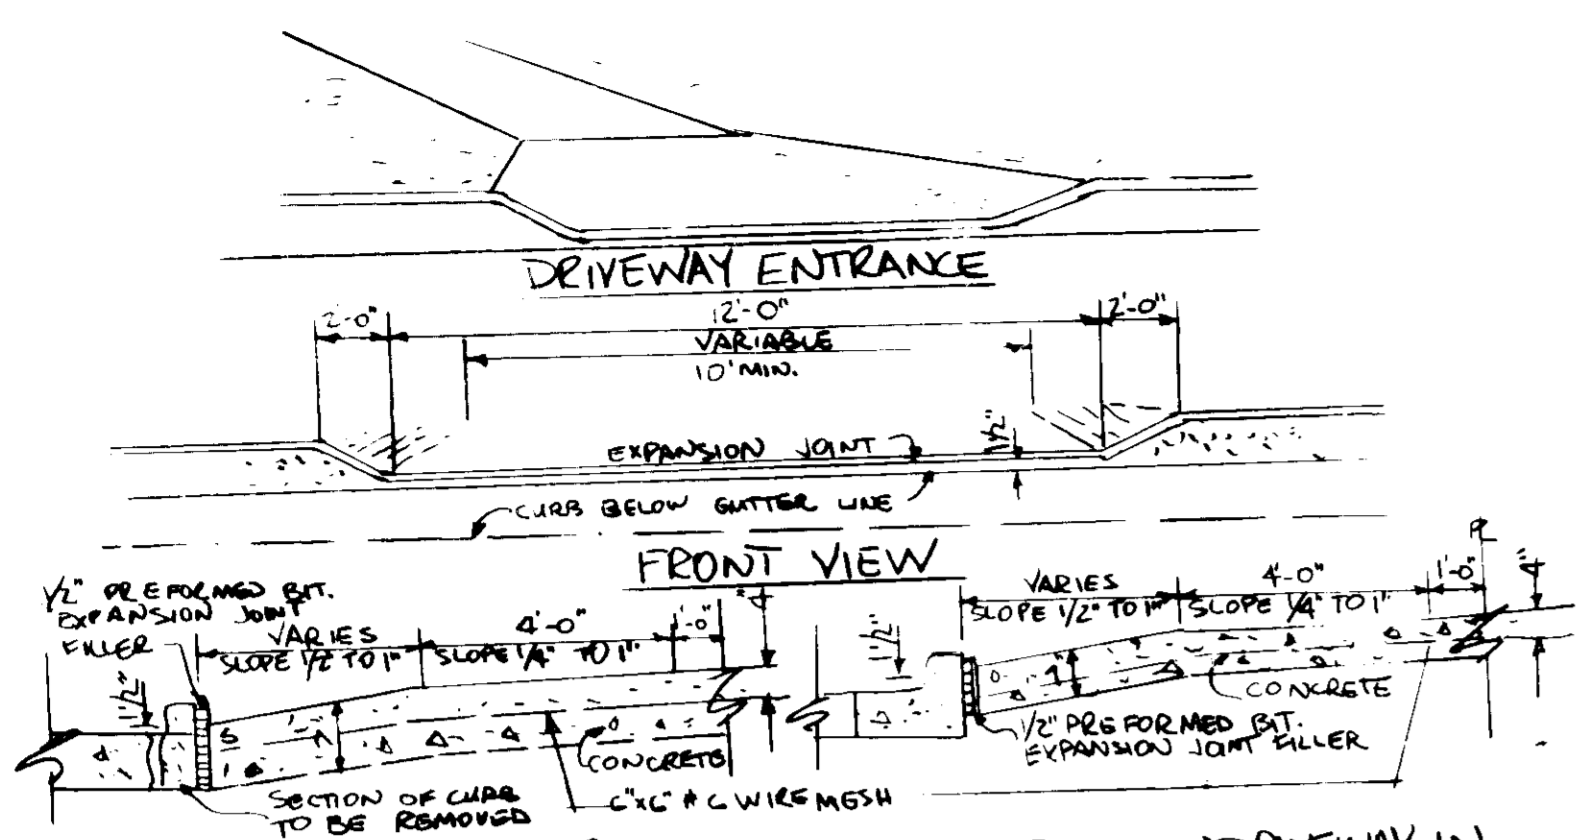 DRIVEWAY ENTRANCE
2'-0"
12'-0"
2'-0"
VARIABLE
10' MIN.
1½"
EXPANSION JOINT
CURB BELOW GUTTER LINE
FRONT VIEW
½" PREFORMED BIT.
EXPANSION JOINT
FILLER
VARIES
SLOPE 1/2" TO 1"
4'-0"
SLOPE 1/4" TO 1"
1'-0"
4"
1½"
CONCRETE
SECTION OF CURB
TO BE REMOVED
6"x6" #6 WIRE MESH
VARIES
SLOPE 1/2" TO 1"
4'-0"
SLOPE 1/4" TO 1"
1'-0"
PL
4"
1½"
CONCRETE
1/2" PREFORMED BIT.
EXPANSION JOINT FILLER
DRIVEWAY IN